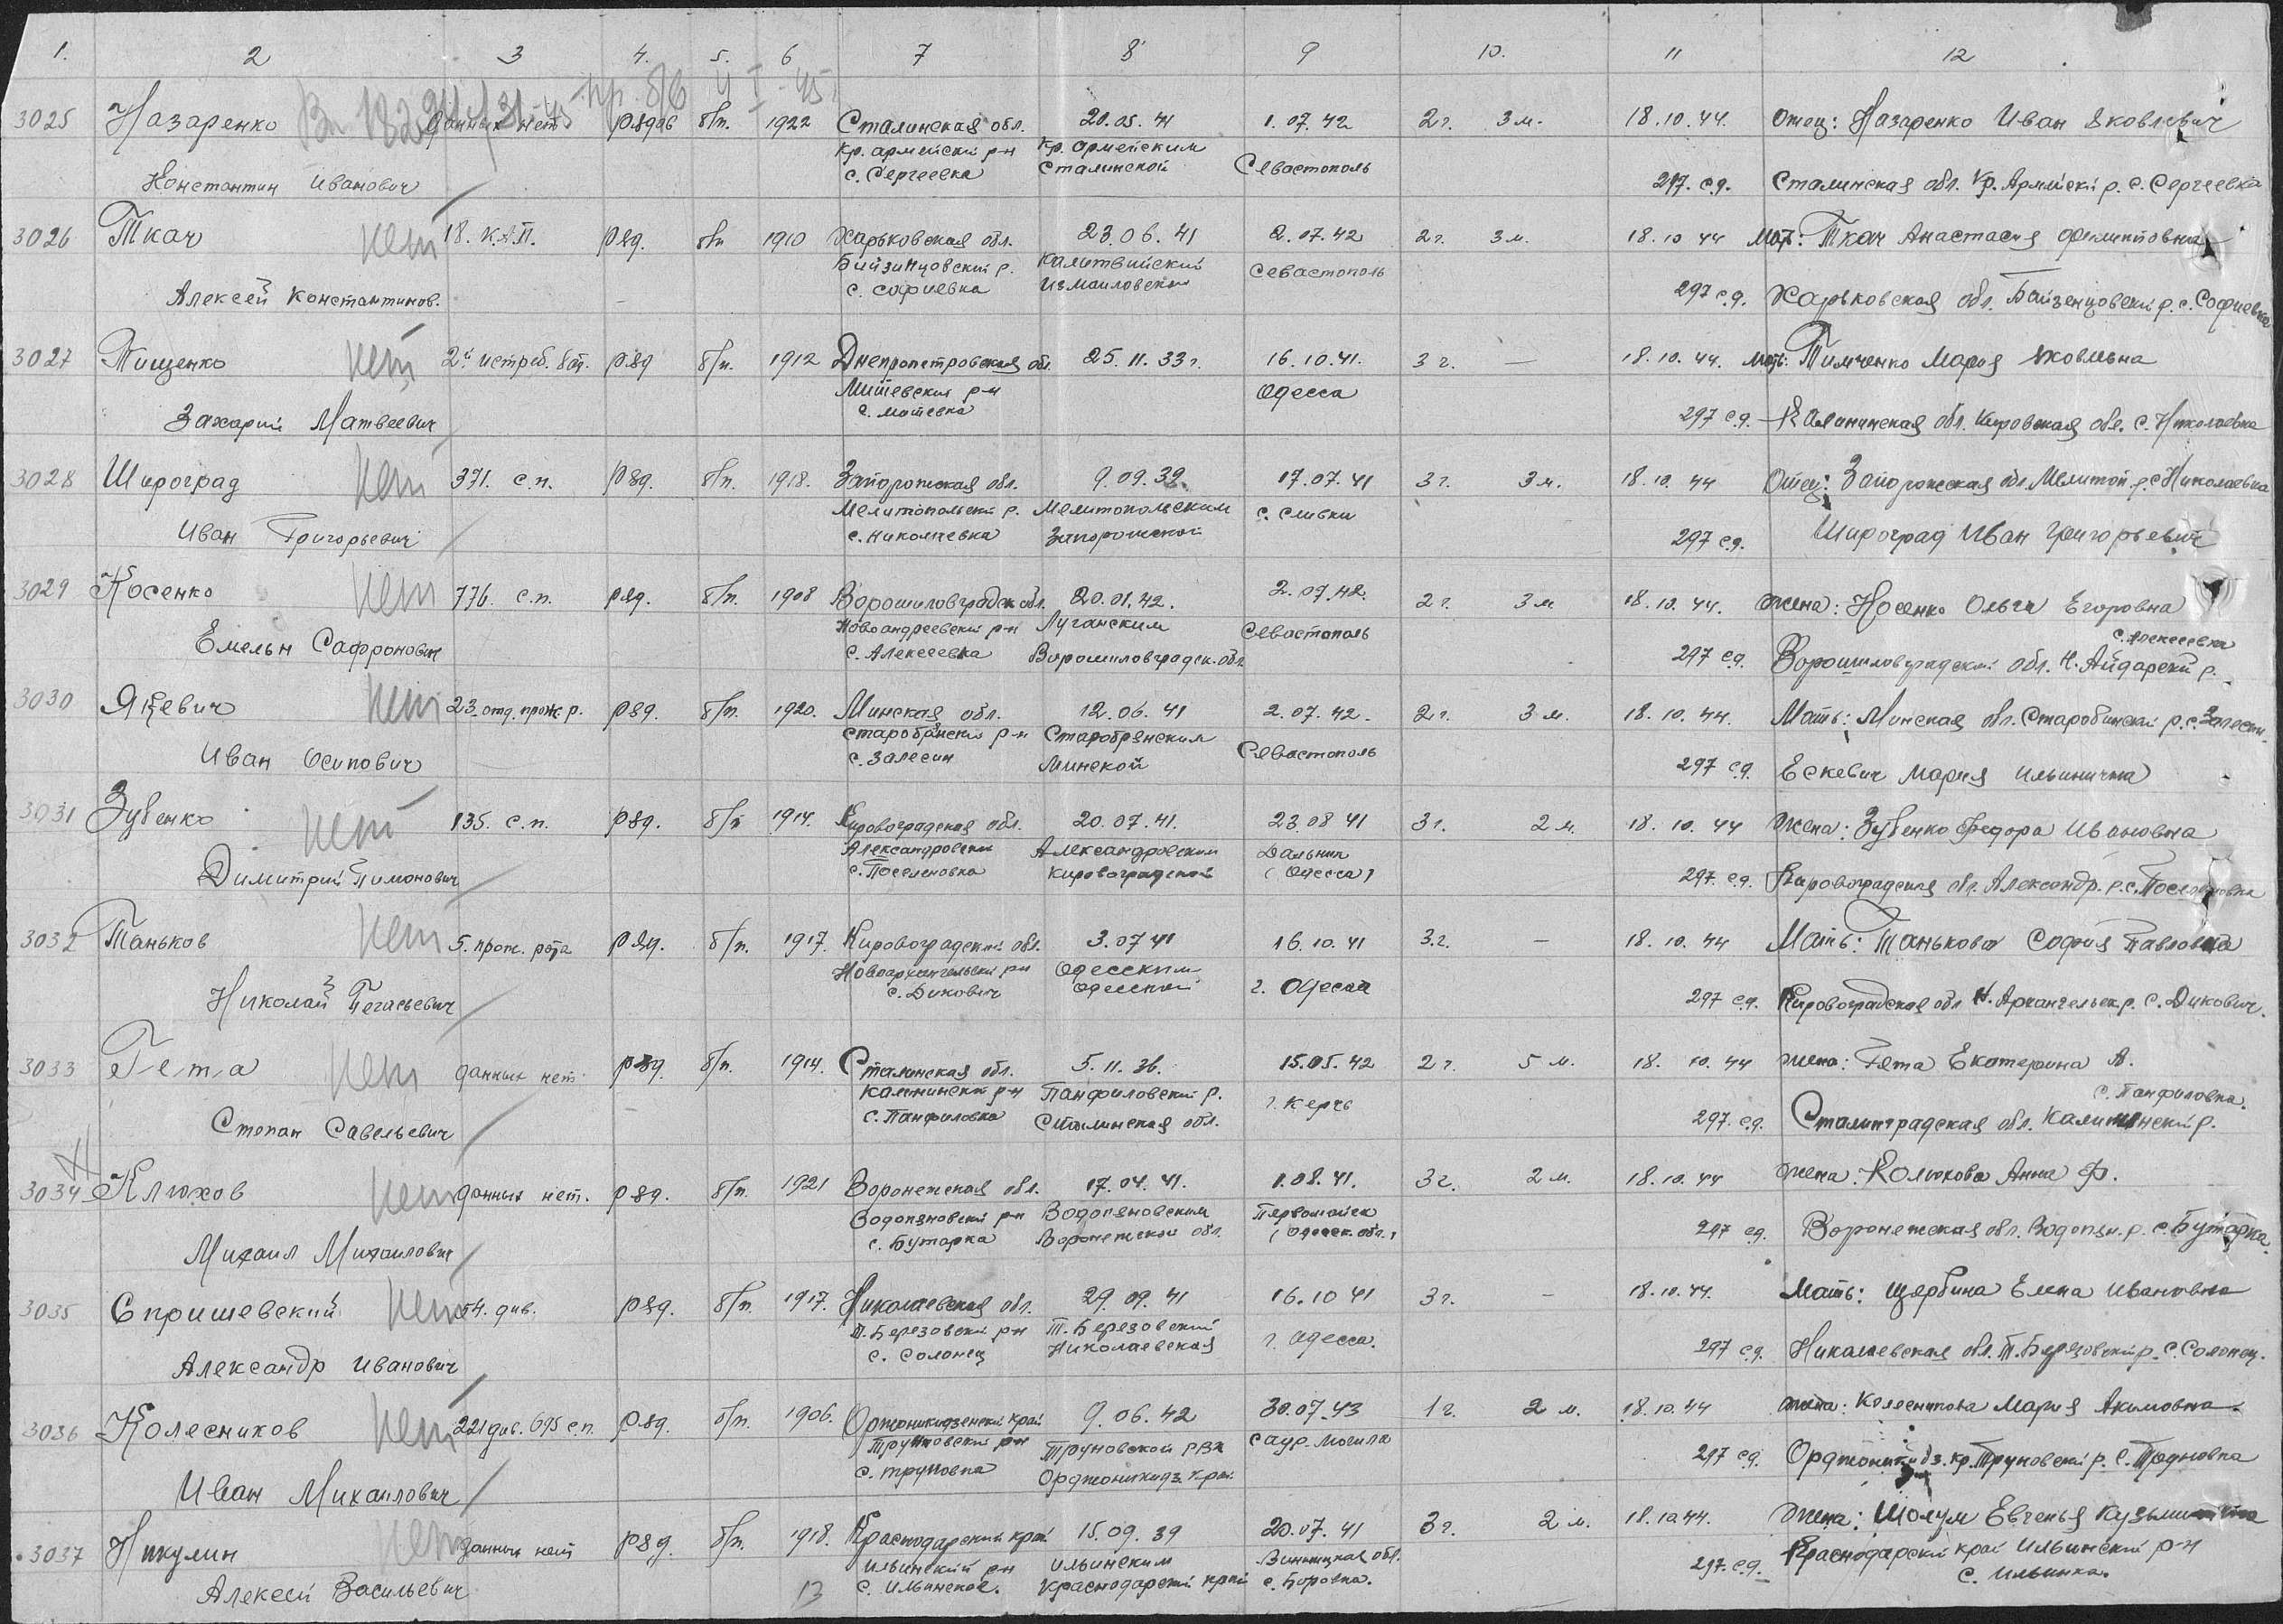 1. 2 3 4. 5. 6 7 8 9 10. 11 12
3025 Назаренко данных нет ряд б/п. 1922 Сталинская обл. 20.05.41 1.07.42 2г. 3м. 18.10.44. Отец: Назаренко Иван Яковлевич
Кр. армейски р-н Кр. армейским
Константин Иванович с. Сергеевка Сталинской Севастополь 297. с.д. Сталинская обл. Кр. Армейски р. с. Сергеевка
3026 Ткач нет 18. К.А.П. ряд. б/п 1910 Харьковская обл. 23.06.41 2.07.42 2г. 3м. 18.10 44 Мат: Ткач Анастасия Филипповна
Севастополь
Алексей Константинов. с. Софиевка Измаиловской 297 с.д. Харьковская обл. р. с. Софиевка
3027 Тищенко нет 2й истреб. бат. ряд б/п. 1912 Днепропетровская обл. 25.11.33г. 16.10.41. 3г. — 18.10.44. Мать: Тимченко Мария Яковлевна
р-н Одесса
Захарий Матвеевич 297 с.д. Калининская обл. Кировская обл. с. Николаевка
3028 Широград нет 371. с.п. ряд. б/п. 1918. Запорожская обл. 9.09.39. 17.07.41 3г. 3м. 18.10.44 Отец: Запорожская обл. Мелитоп. р. с Николаевка
Мелитопольски р. Мелитопольским с. Сливки
Иван Григорьевич с. Николаевка Запорожской 297 с.д. Широград Иван Григорьевич
3029 Косенко нет 776. с.п. ряд. б/п. 1908 Ворошиловградск обл. 20.01.42. 2.07.42. 2г. 3м 18.10.44. Жена: Носенко Ольга Егоровна
Новоандреевски р-н Луганским Севастополь с. Алексеевка
Емельн Сафронович с. Алексеевка Ворошиловградск. обл. 297 с.д. Ворошиловградской обл. Н. Айдарски р.
3030 Яцевич нет 23 отд. прож р. ряд. б/п. 1920. Минская обл. 12.06.41 2.07.42. 2г. 3м. 18.10.44. Мать: Минская обл. Старобински р. с. Залесин.
Старобински р-н Старобрянским Севастополь
Иван Осипович с. Залесин Минской 297 с.д. Ескевич Мария Ильинична
3031 Зубенко нет 135. с.п. ряд. б/п 1914. Кировоградская обл. 20.07.41. 23.08 41 3г. 2м. 18.10.44 Жена: Зубенко Федора Ивановна
Александровски Александровским Дальник
Димитрий Пимонович с. Поселеновка Кировоградской (Одесса) 297. с.д. Кировоградская обл. Александр. р. с.
3032 Таньков нет 5. прож. рота ряд. б/п. 1917. Кировоградской обл. 3.07 41 16.10.41 3.г. — 18.10.44 Мать: Танькова София Павловна
Новоархангельски р-н Одесским
Николай с. Дикович Одесской г. Одесса 297 с.д. Кировоградская обл Н. Архангельск р. с. Дикович.
3033 Гета нет данных нет ряд б/п. 1914. Сталинская обл. 5.11.36. 15.05.42 2г. 5м. 18.10.44 Жена: Гета Екатерина А.
Калининск р-н Панфиловски р. г. Керчь с. Панфиловка.
Степан Савельевич с. Панфиловка Сталинская обл. 297. с.д. Сталинградская обл. Калининский р.
3034 Клюхов нет данных нет. ряд. б/п. 1921 Воронежская обл. 17.04.41. 1.08.41. 3г. 2м. 18.10.44 Жена: Колюкова Анна Ф.
Водопяновски р-н Водопяновским Первомайск
Михаил Михаилович с. Бутарка Воронежской обл. (Одесск. обл.) 297 с.д. Воронежская обл. Водопян. р. с. Бутарка.
3035 Спришевский нет 54. див. ряд. б/п. 1917. Николаевская обл. 29.09.41 16.10 41 3г. — 18.10.44. Мать: Щербина Елена Ивановна
Т. Березовски р-н Т. Березовский г. Одесса.
Александр Иванович с. Солонец Николаевская 297 с.д. Николаевская обл. Т. Березовски р. с. Солонец.
3036 Колесников нет 221 див. 695 с.п. ряд. б/п. 1906. Орженикидзенски край 9.06.42 30.07.43 1г. 2м. 18.10.44 Жена: Колесникова Мария Акимовна.
Труновски р-н Труновской РВК Саур. Могила
Иван Михаилович с. Труновка Орджоникидз. край 297 с.д. Орджоникидз. кр. Труновски р. с. Труновка
3037 Никулин нет данных нет ряд. б/п. 1918. Краснодарский край 15.09.39 20.07.41 3г. 2м. 18.10.44. Жена: Шолум Евгенья Кузьминична
Ильинский р-н Ильинским Винницкая обл. 297. с.д. Краснодарски край Ильински р-н
Алексей Васильевич с. Ильинское. Краснодарский край с. Боровка. с. Ильинка.
13